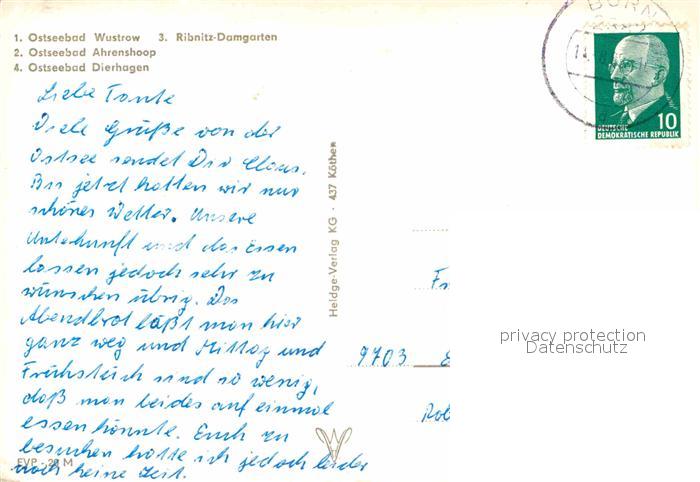 1. Ostseebad Wustrow 3. Ribnitz-Damgarten
2. Ostseebad Ahrenshoop
4. Ostseebad Dierhagen
Liebe Tante
Viele Grüße von der
Ostsee sendet Dir Claus.
Bis jetzt hatten wir nur
schönes Wetter. Unsere
Unterkunft und das Essen
lassen jedoch sehr zu
wünschen übrig. Das
Abendbrot läßt man hier
ganz weg und Mittag und
Frühstück sind so wenig,
daß man beides auf einmal
essen könnte. Euch zu
besuchen hatte ich jedoch leider
noch keine Zeit.
EVP - 20 M
Heldge-Verlag KG · 437 Köthen
BORN
DEUTSCHE
DEMOKRATISCHE REPUBLIK
10
Fr
9703
Rob
privacy protection
Datenschutz